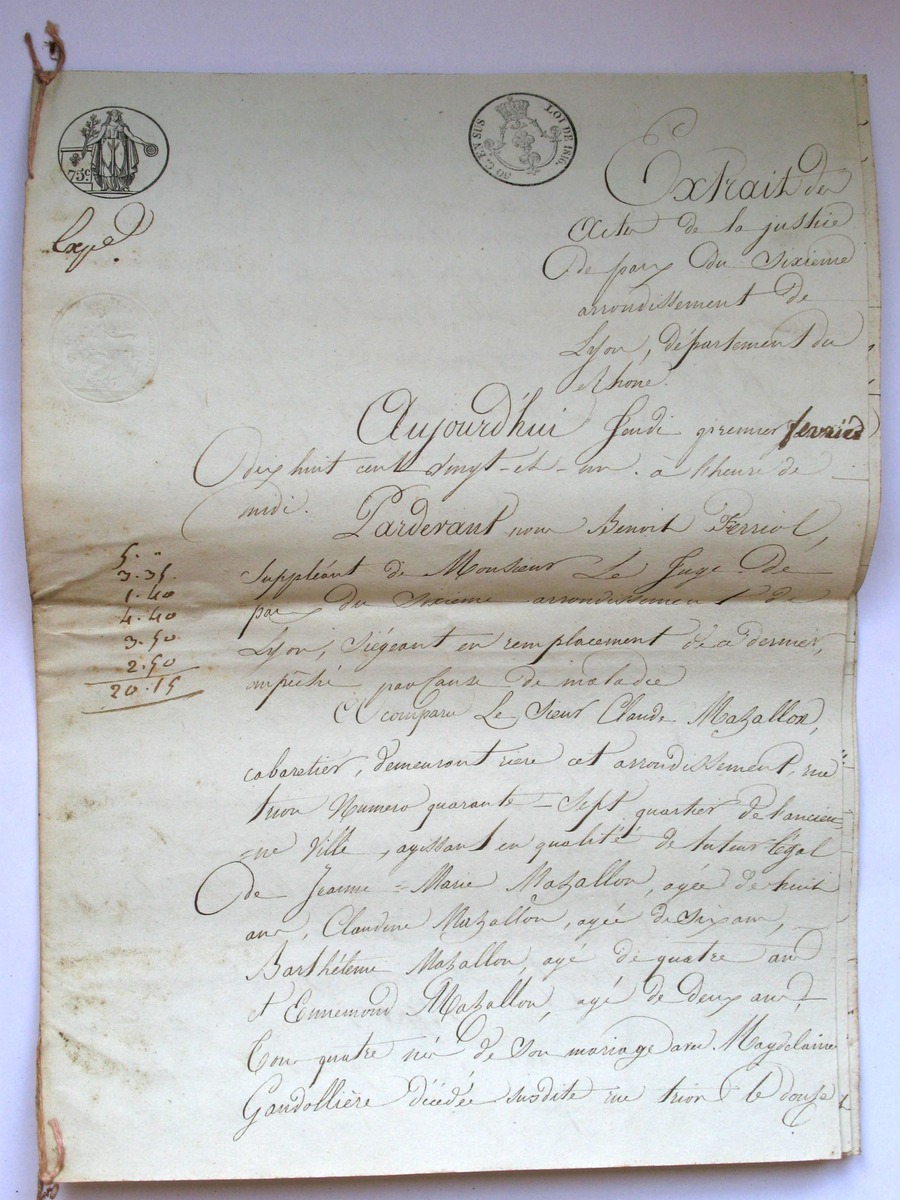 75c
30 C. EN SUS
LOI DE 1816.
Expd
Extrait des
Actes de la justice
de paix du Sixieme
arrondissement de
Lyon, département du
Rhone.
Aujourd'hui Jeudi premier fevrier
Dix huit cent vingt-et-un. à l'heure de
midi.
Pardevant nous Benoit Ferriol,
suppléant de Monsieur Le Juge de
paix du Sixieme arrondissement de
Lyon, siégeant en remplacement de ce dernier,
empêché par cause de maladie
A comparu Le Sieur Claude Mazallon,
cabaretier, demeurant rière cet arrondissement, rue
trion Numero quarante-Sept quartier de l'ancien-
=ne Ville, agissant en qualité de tuteur légal
De Jeanne=Marie Mazallon, agée de huit
ans, Claudine Mazallon, agée de six ans,
Barthélemi Mazallon, agé de quatre ans
et Ennemond Mazallon, agé de deux ans
Tous quatre nés de Son mariage avec Magdelaine
Gandollière décédée susdite rue trion le douze
5. "
3.35.
1.40
4.40
3.50
2.50
20.15